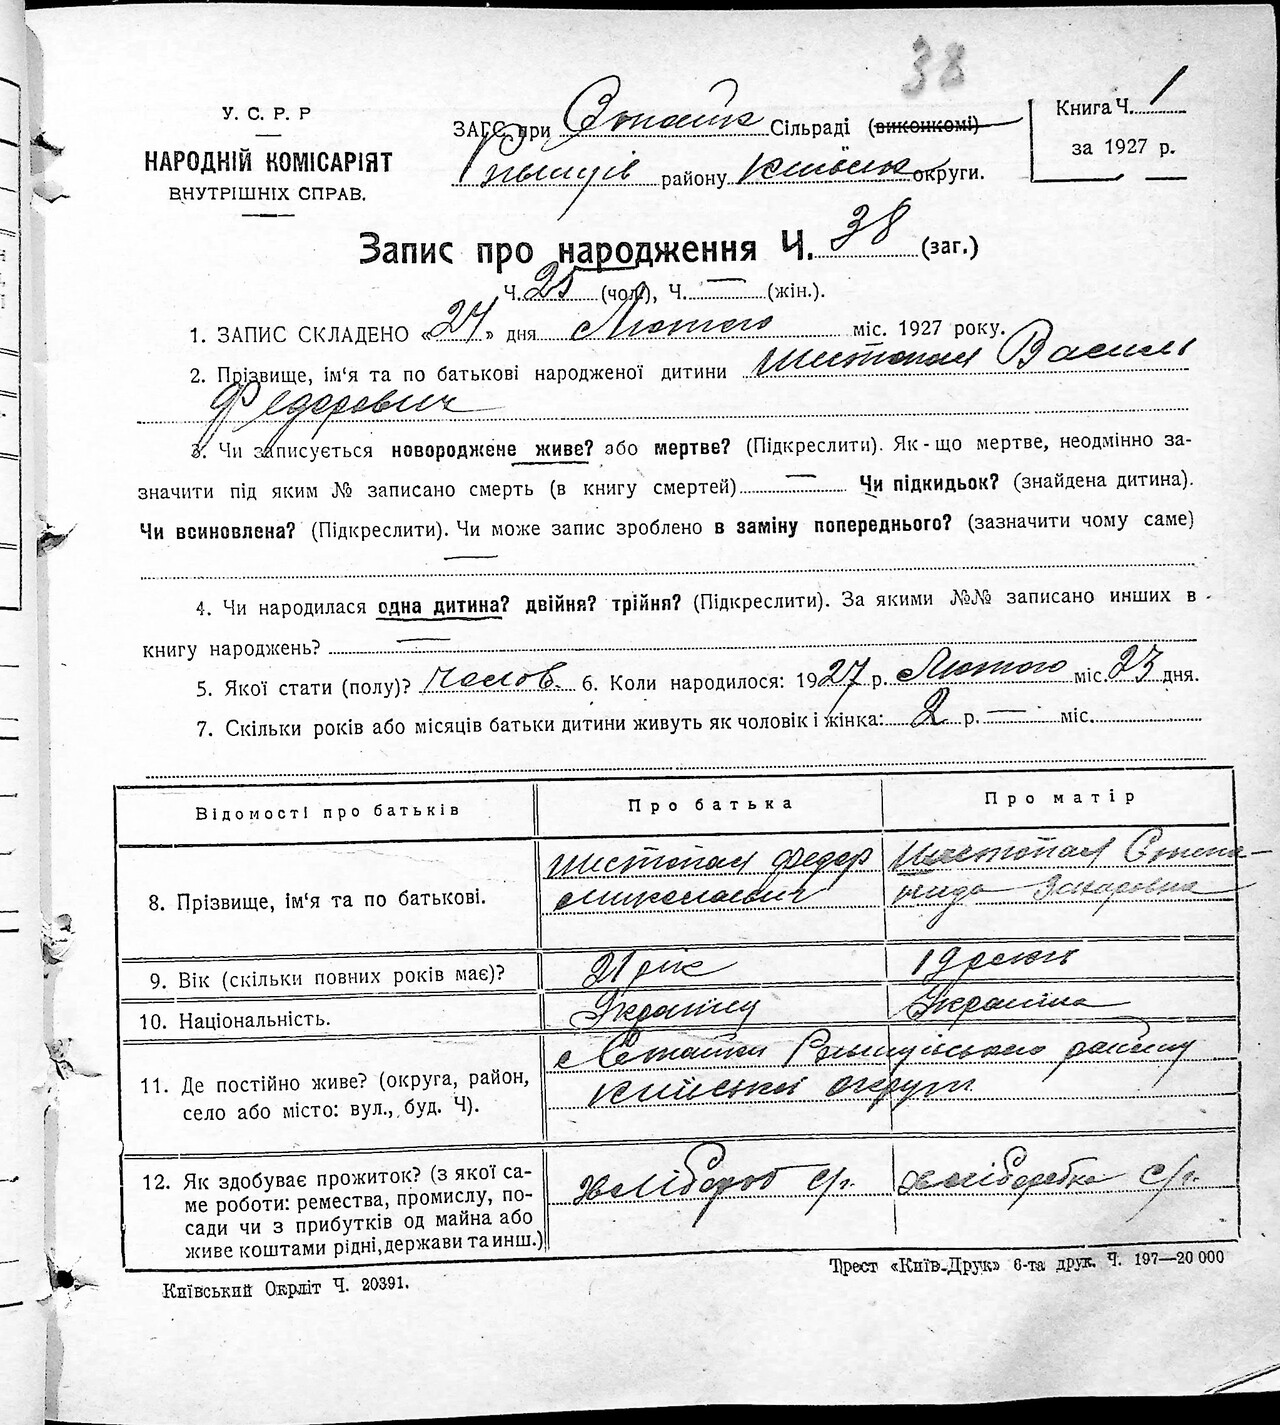 38
У. С. Р. Р
НАРОДНІЙ КОМІСАРІЯТ
ВНУТРІШНІХ СПРАВ.
ЗАГС при Стайк Сільраді (виконкомі)
району Київськ округи.
Книга Ч. 1
за 1927 р.
Запис про народження Ч. 38 (заг.)
Ч. 25 (чол.), Ч. — (жін.).
1. ЗАПИС СКЛАДЕНО «27» дня Лютого міс. 1927 року.
2. Прізвище, ім‘я та по батькові народженої дитини Шестопал Василь
Федорович
3. Чи записується новороджене живе? або мертве? (Підкреслити). Як-що мертве, неодмінно за-
значити під яким № записано смерть (в книгу смертей) — Чи підкидьок? (знайдена дитина).
Чи всиновлена? (Підкреслити). Чи може запис зроблено в заміну попереднього? (зазначити чому саме)
—
4. Чи народилася одна дитина? двійня? трійня? (Підкреслити). За якими №№ записано инших в
книгу народжень? —
5. Якої стати (полу)? чолов. 6. Коли народилося: 1927 р. Лютого міс. 23 дня.
7. Скільки років або місяців батьки дитини живуть як чоловік і жінка: 2 р. — міс.
Відомості про батьків Про батька Про матір
8. Прізвище, ім‘я та по батькові. Шестопал Федор Шестопал Степа-
Миколаевич нида Захаровна
9. Вік (скільки повних років має)? 21 рік 19 років
10. Національність. Українец Українка
11. Де постійно живе? (округа, район,
село або місто: вул., буд. Ч).
с Стайки району
Київської округи
12. Як здобуває прожиток? (з якої са-
ме роботи: ремества, промислу, по-
сади чи з прибутків од майна або
живе коштами рідні, держави та инш.)
хлібороб с/г. хліборобка с/г.
Київський Окрліт Ч. 20391.
Трест «Київ-Друк» 6-та друк. Ч. 197—20 000